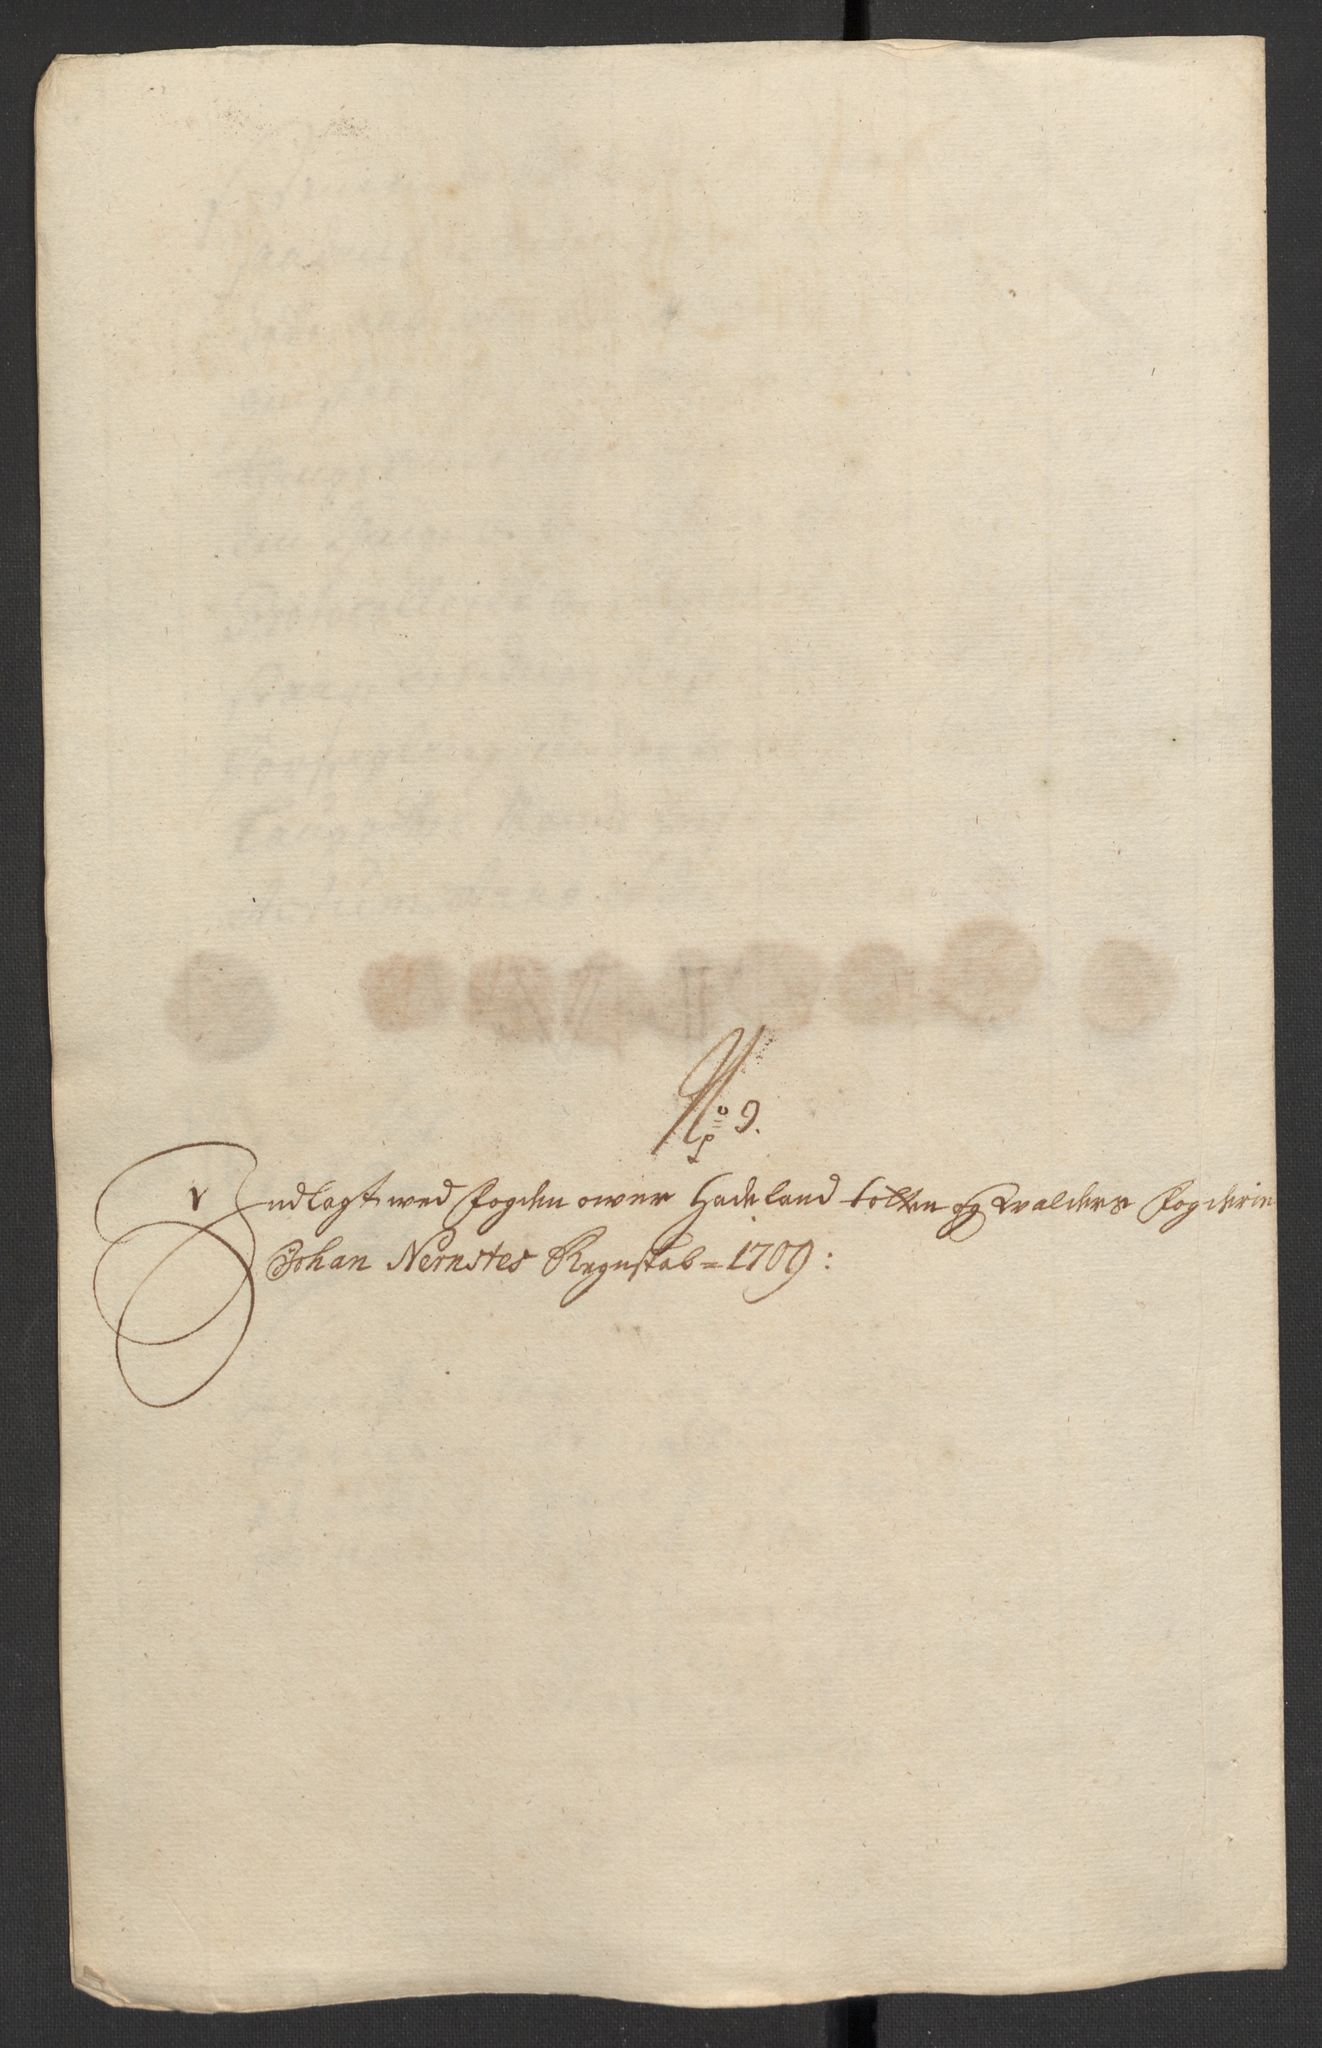 No 9.
Indlagt wed Fogden ower Hadeland Totten og Walders Fogderie
Johan Nernstes Regnskab = 1709: